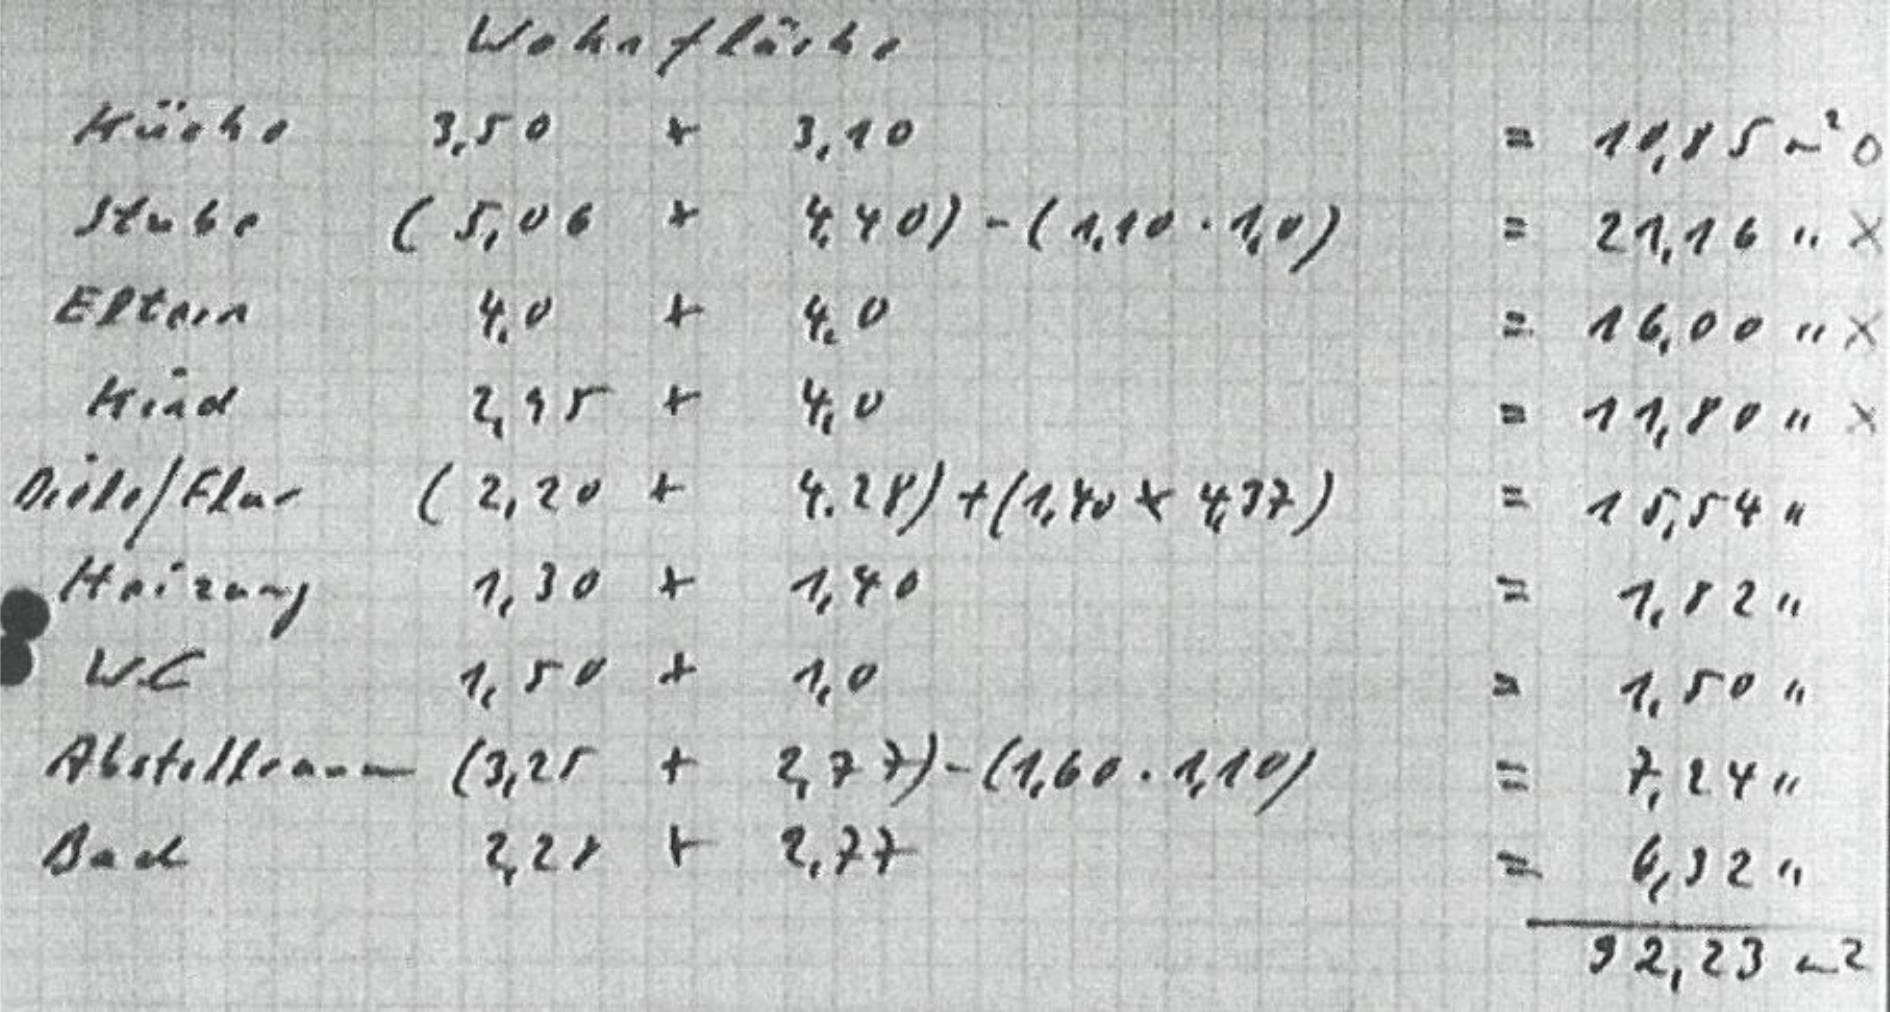 Wohnfläche
Küche 3,50 x 3,10 = 10,85 m² O
Stube (5,06 x 4,40) - (1,10 · 1,0) = 21,16 " X
Eltern 4,0 x 4,0 = 16,00 " X
Kind 2,95 x 4,0 = 11,80 " X
Diele/Flur (2,20 x 4.28) + (1,40 x 4,37) = 15,54 "
Heizung 1,30 x 1,40 = 1,82 "
WC 1,50 x 1,0 = 1,50 "
Abstellraum (3,25 x 2,77) - (1,60 · 1,10) = 7,24 "
Bad 2,28 x 2,77 = 6,32 "
92,23 m2